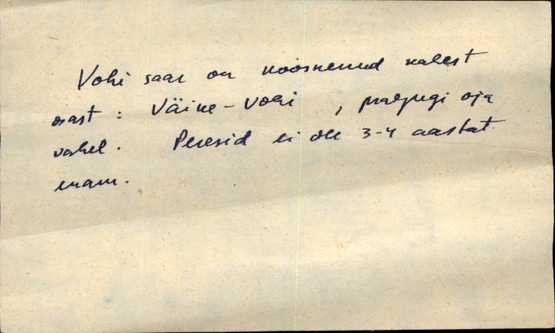 Vohi saar on koosnenud kahest
osast: Väike-Vohi , praegugi oja
vahel. Peresid ei ole 3-4 aastat
enam.